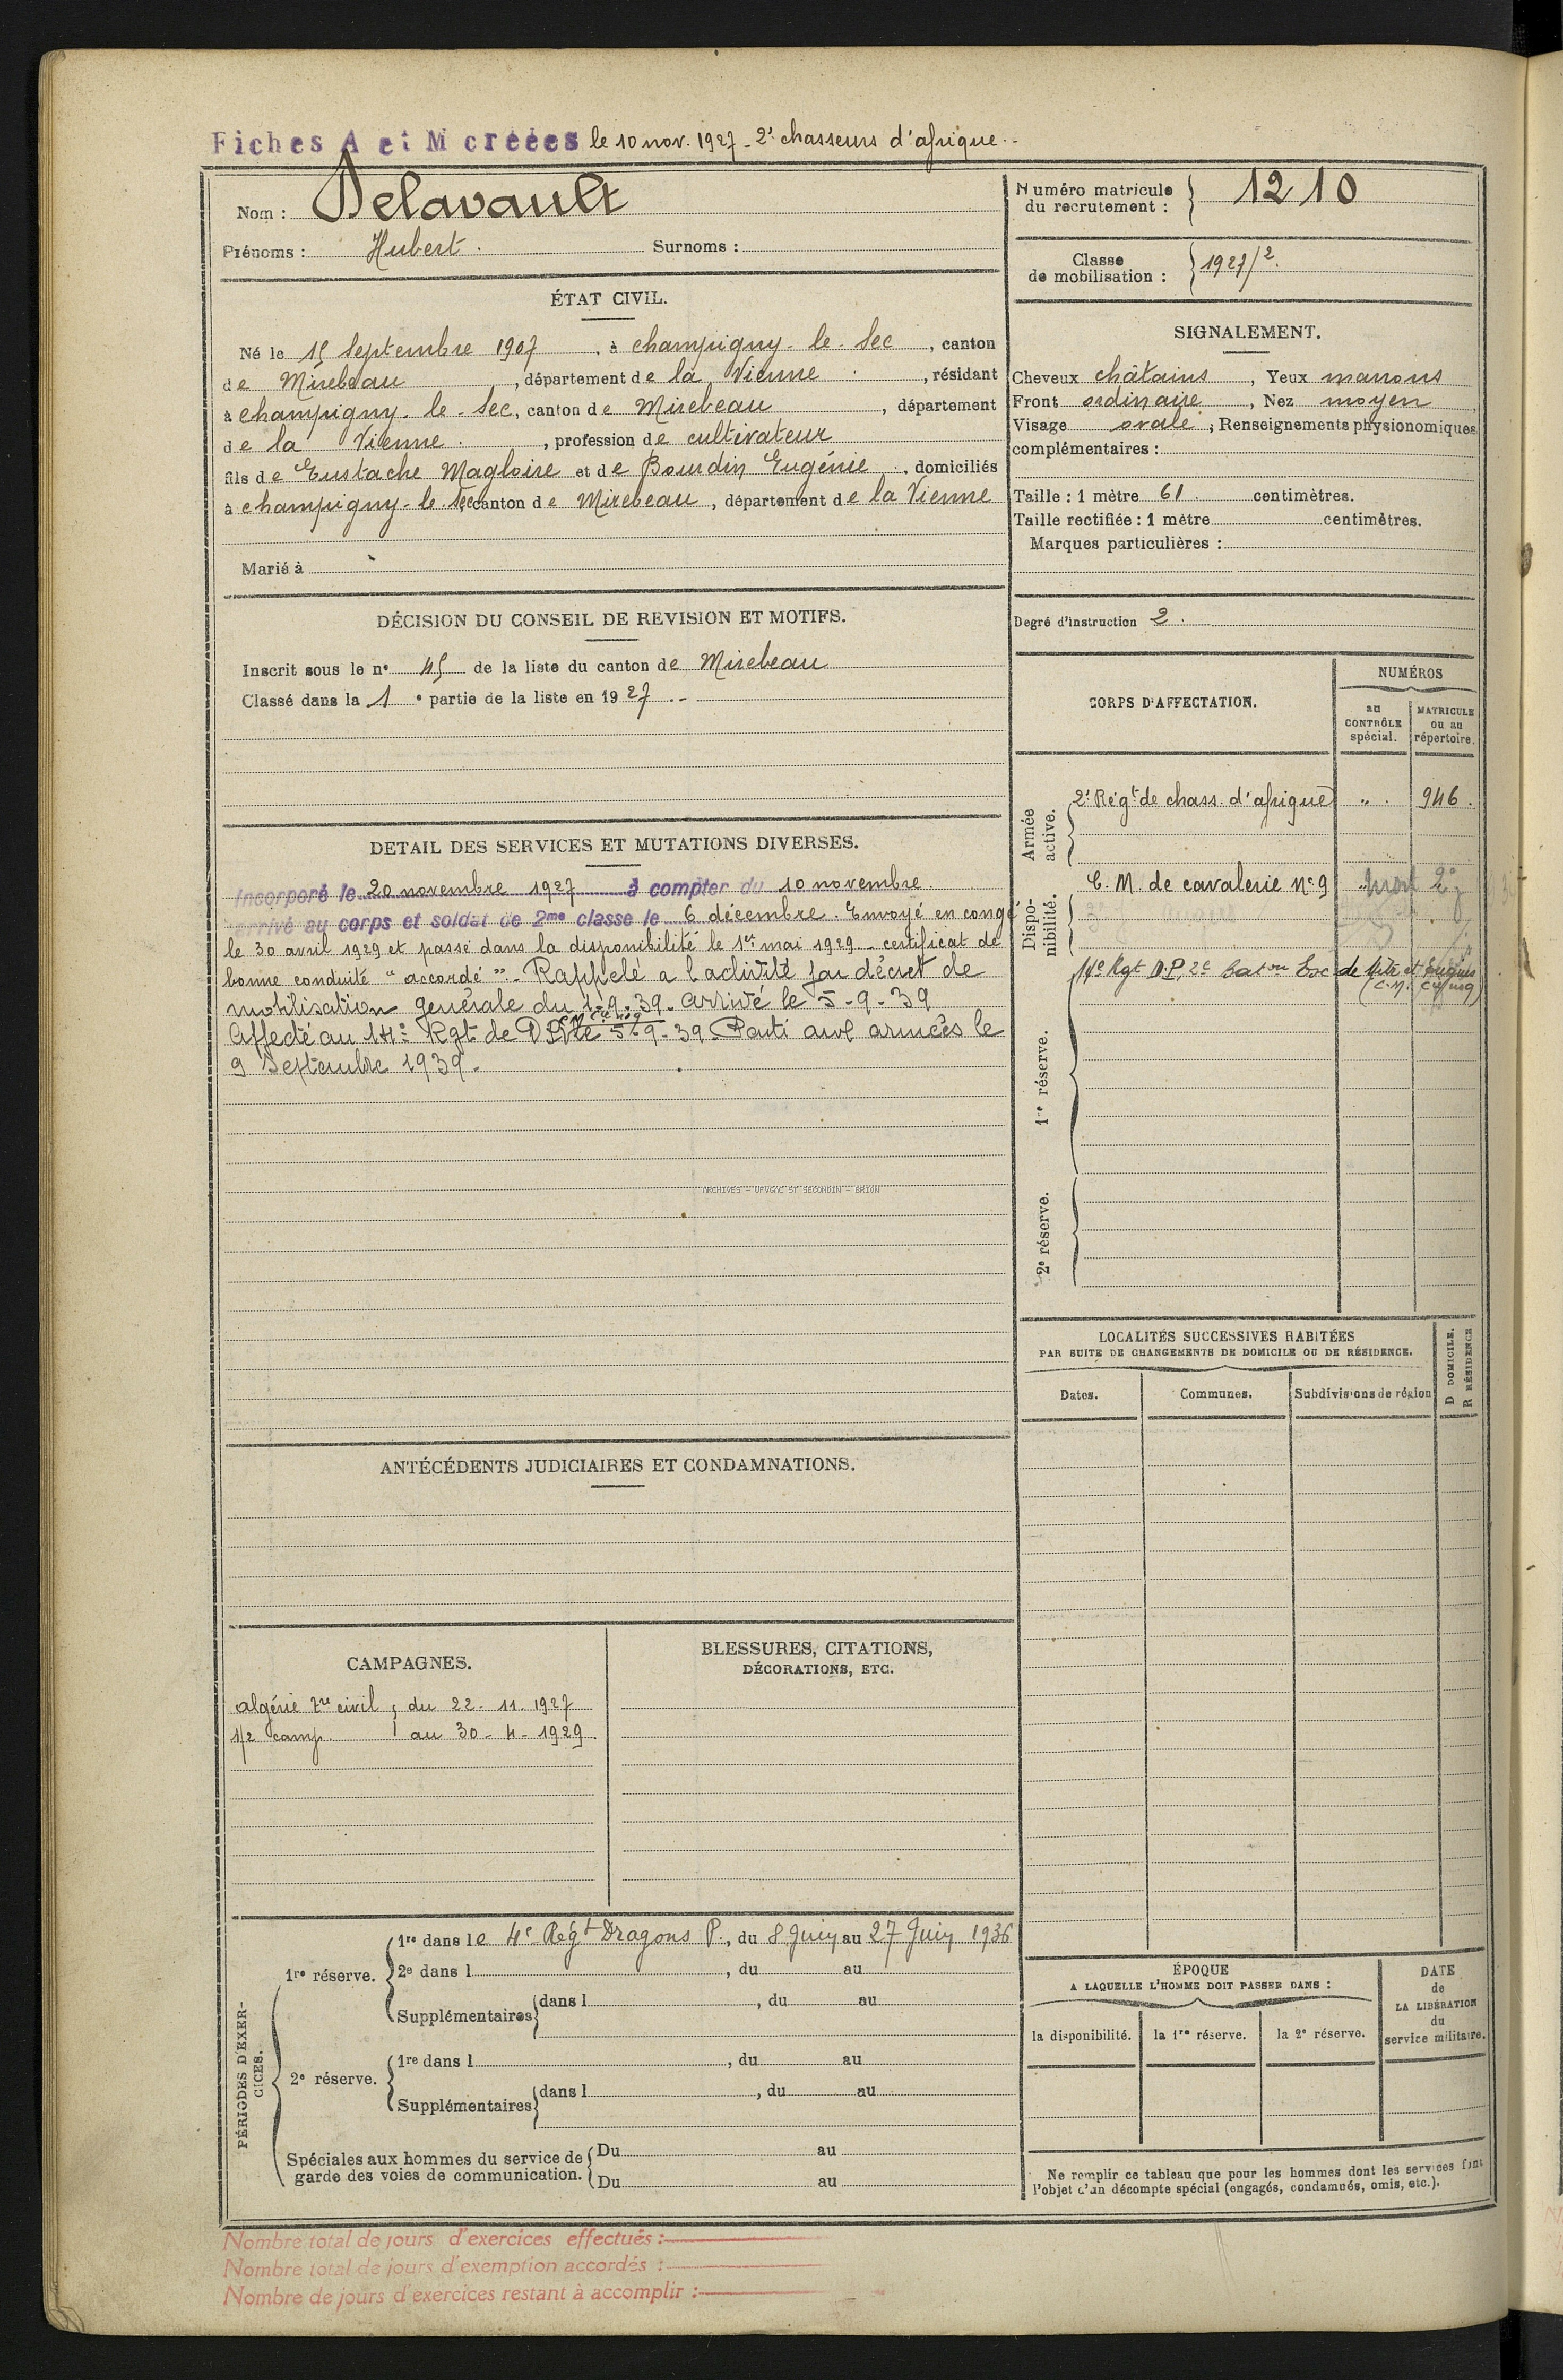 Fiches A et M créées le 10 nov. 1927 - 2e chasseurs d'afrique..
Nom : Delavault
Prénoms : Hubert. Surnoms :
Numéro matricule du recrutement : 1210
Classe de mobilisation : 1927/2.
ÉTAT CIVIL.
Né le 15 Septembre 1907, à champigny-le-Sec, canton
de Mirebeau, département de la Vienne, résidant
à champigny-le-Sec, canton de Mirebeau, département
de la Vienne, profession de cultivateur
fils de Eustache Magloire et de Bourdin Eugénie, domiciliés
à champigny-le-Sec canton de Mirebeau, département de la Vienne
Marié à
SIGNALEMENT.
Cheveux châtains, Yeux marrons
Front ordinaire, Nez moyen
Visage ovale; Renseignements physionomiques
complémentaires :
Taille : 1 mètre 61 centimètres.
Taille rectifiée : 1 mètre centimètres.
Marques particulières :
Degré d'instruction 2.
DÉCISION DU CONSEIL DE REVISION ET MOTIFS.
Inscrit sous le n° 45 de la liste du canton de Mirebeau
Classé dans la 1e partie de la liste en 1927.-
CORPS D'AFFECTATION.
NUMÉROS
au CONTRÔLE spécial.
MATRICULE ou au répertoire.
Armée active.
2e Régt de chass. d'afrique " 946.
Disponibilité.
C. M. de cavalerie n° 9
1re réserve.
14e Rgt D.P. 2e Baton Esc de Mits et Engins
(C.M. Cie n°9)
2e réserve.
DETAIL DES SERVICES ET MUTATIONS DIVERSES.
Incorporé le 20 novembre 1927 à compter du 10 novembre.
arrivé au corps et soldat de 2me classe le 6 décembre. Envoyé en congé
le 30 avril 1929 et passé dans la disponibilité le 1er mai 1929 - certificat de
bonne conduite "accordé". - Rappelé a l'activité par décret de
mobilisation générale du 1-9-39. Arrivé le 5-9-39
Affecté au 14e Rgt de DP le 5-9-39. Parti aux armées le
9 Septembre 1939.
ARCHIVES - UFVGAC ST SECONDIN - BRION
LOCALITÉS SUCCESSIVES HABITÉES
PAR SUITE DE CHANGEMENTS DE DOMICILE OU DE RÉSIDENCE.
Dates.
Communes.
Subdivisions de région
D DOMICILE.
R RÉSIDENCE
ANTÉCÉDENTS JUDICIAIRES ET CONDAMNATIONS.
CAMPAGNES.
algérie tre civil, du 22-11-1927
1/2 camp. au 30-4-1929.
BLESSURES, CITATIONS,
DÉCORATIONS, ETC.
PÉRIODES D'EXERCICES.
1re réserve.
1re dans le 4e Régt Dragons P., du 8 Juin au 27 Juin 1936
2e dans l, du au
Supplémentaires dans l, du au
2e réserve.
1re dans l, du au
Supplémentaires dans l, du au
Spéciales aux hommes du service de
garde des voies de communication.
Du au
Du au
ÉPOQUE
A LAQUELLE L'HOMME DOIT PASSER DANS :
la disponibilité.
la 1re réserve.
la 2e réserve.
DATE
de
LA LIBÉRATION
du
service militaire.
Ne remplir ce tableau que pour les hommes dont les services font
l'objet d'un décompte spécial (engagés, condamnés, omis, etc.).
Nombre total de jours d'exercices effectués :
Nombre total de jours d'exemption accordés :
Nombre de jours d'exercices restant à accomplir :